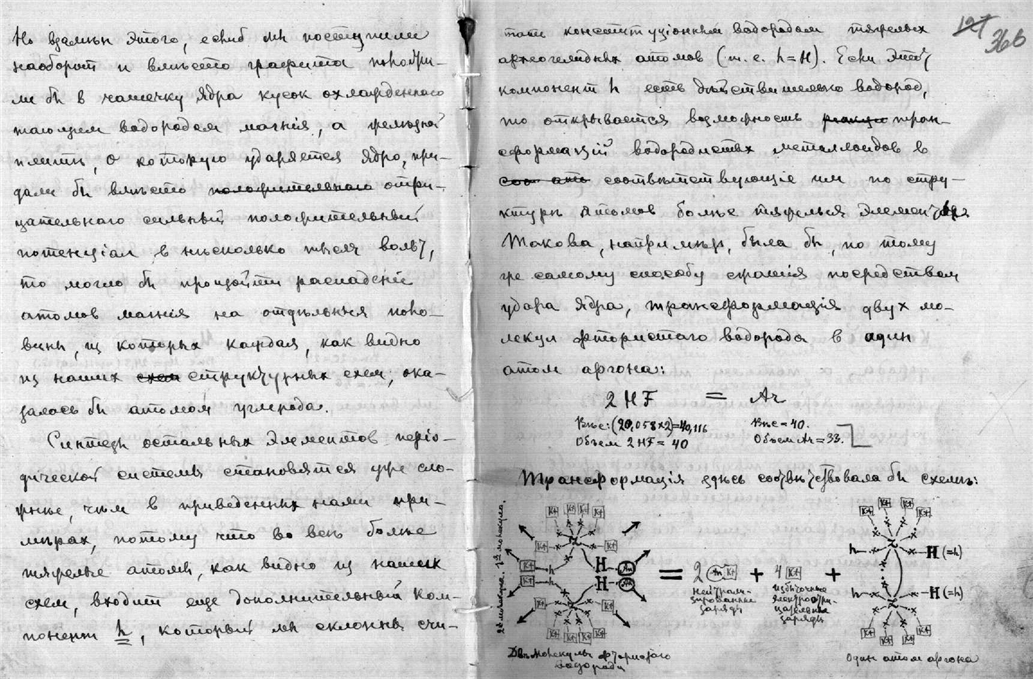 Но взамѣн этого, еслиб мы поступили
наоборот и вмѣсто графита поло­жи-
ли бы в чашечку Ядра кусок охлажденного
тающим водородом магнія, а
плиты, о которую ударяется Ядро, при-
дали бы, вмѣсто отри-
цательного сильный положительный
потенціал в нѣсколько тысяч вольт,
то могло бы произойти распаденіе
атомов магнія на отдѣльныя поло-
вины, из которых каждая, как видно
из наших структурных схем, ока-
залась бы атомом углерода.
Синтез остальных элементов періо-
дической системы становятся уже сло-
жнѣе чѣм в приведенных нами при-
мѣрах, потому что во всѣ болѣе
тяжелые атомы, как видно из наших
схем, входит еще дополнительный ком-
понент h, который мы склонны счи-
127
366
тать конституціонным водородом тяжелых
археогелидных атомов (т. е. h=H). Если этот
компонент h есть дѣйствительно водород,
то открывается возможность тран-
сформацій водородистых металлоидов в
соотвѣтствующіе им по стру-
ктурѣ атомов болѣе тяжелые элементы.
Такова, напримѣр, была бы, по тому
же самому способу сжатія посредством
удара Ядра, трансформація двух мо-
лекул фтористого водорода в один
атом аргона:
2HF = Ar
Вѣс: (20,058×2)=40,116 Вѣс = 40.
Объем 2HF = 40 Объем Ar = 33.
Трансформація здѣсь соотвѣтствовала бы схемѣ:
2я молекула. 1я молекула.
= 2 + 4 +
нейтрал-
изированные
заряды
избыточные
электроотри-
цательные
заряды
h H (=h)
h H (=h)
Двѣ молекулы фтористого
водорода
Один атом аргона